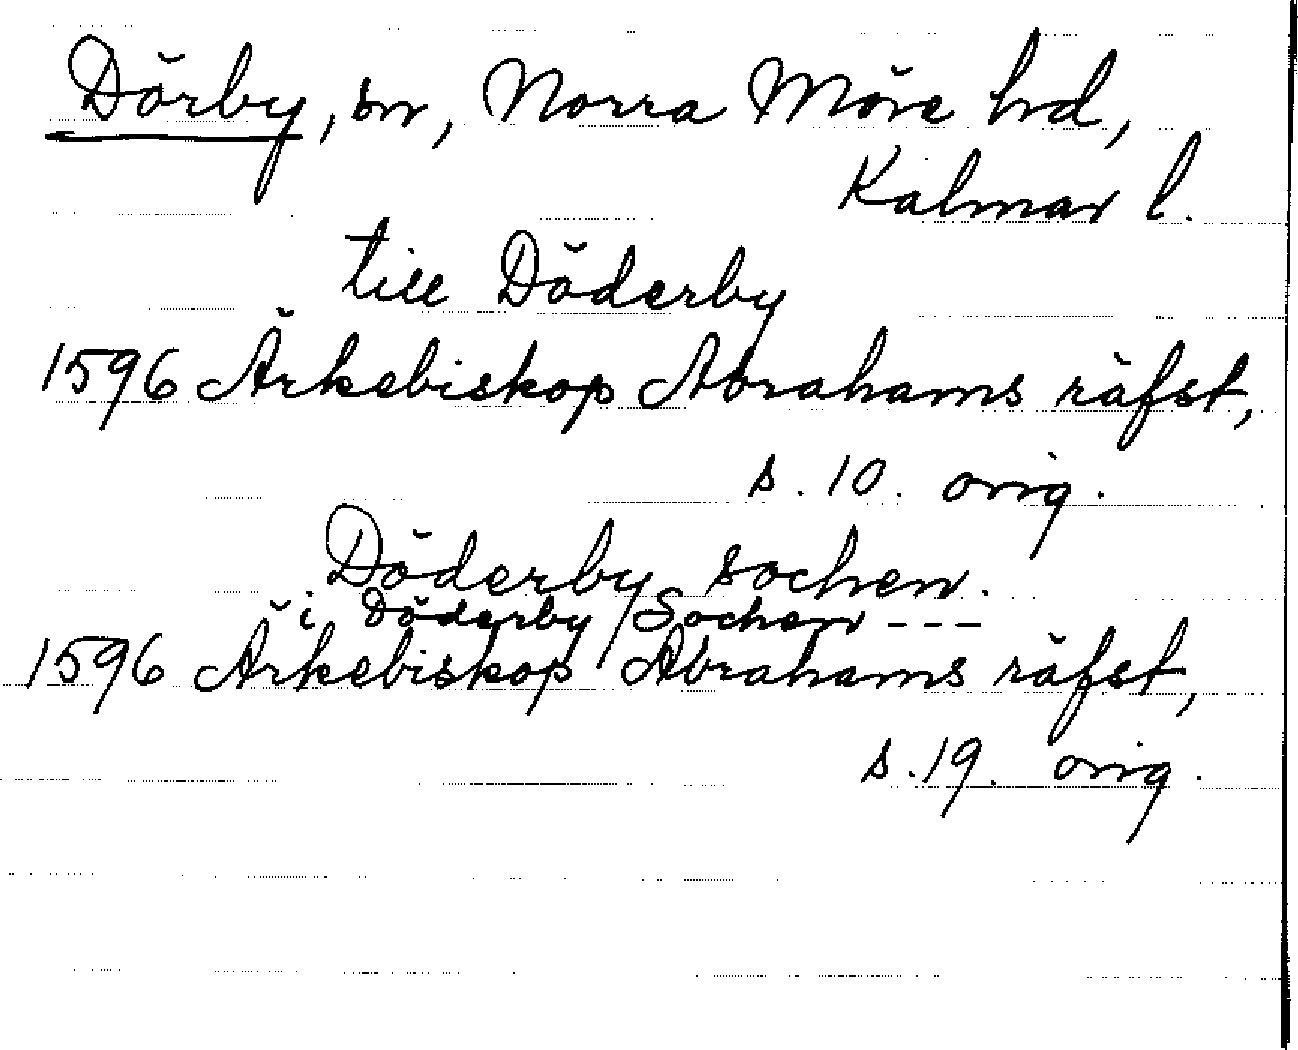 Dörby, sn, Norra Möre hd,
Kalmar l.
till Döderby
1596 Ärkebiskop Abrahams räfst,
s. 10. orig.
Döderby sochen.
i Döderby Sochen ---
1596 Ärkebiskop Abrahams räfst,
s. 19. orig.